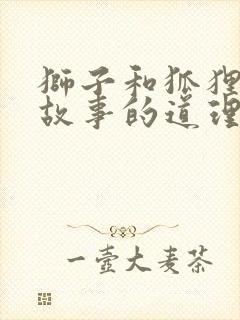 獅子和狐狸
故事的道理
一壺大麦茶